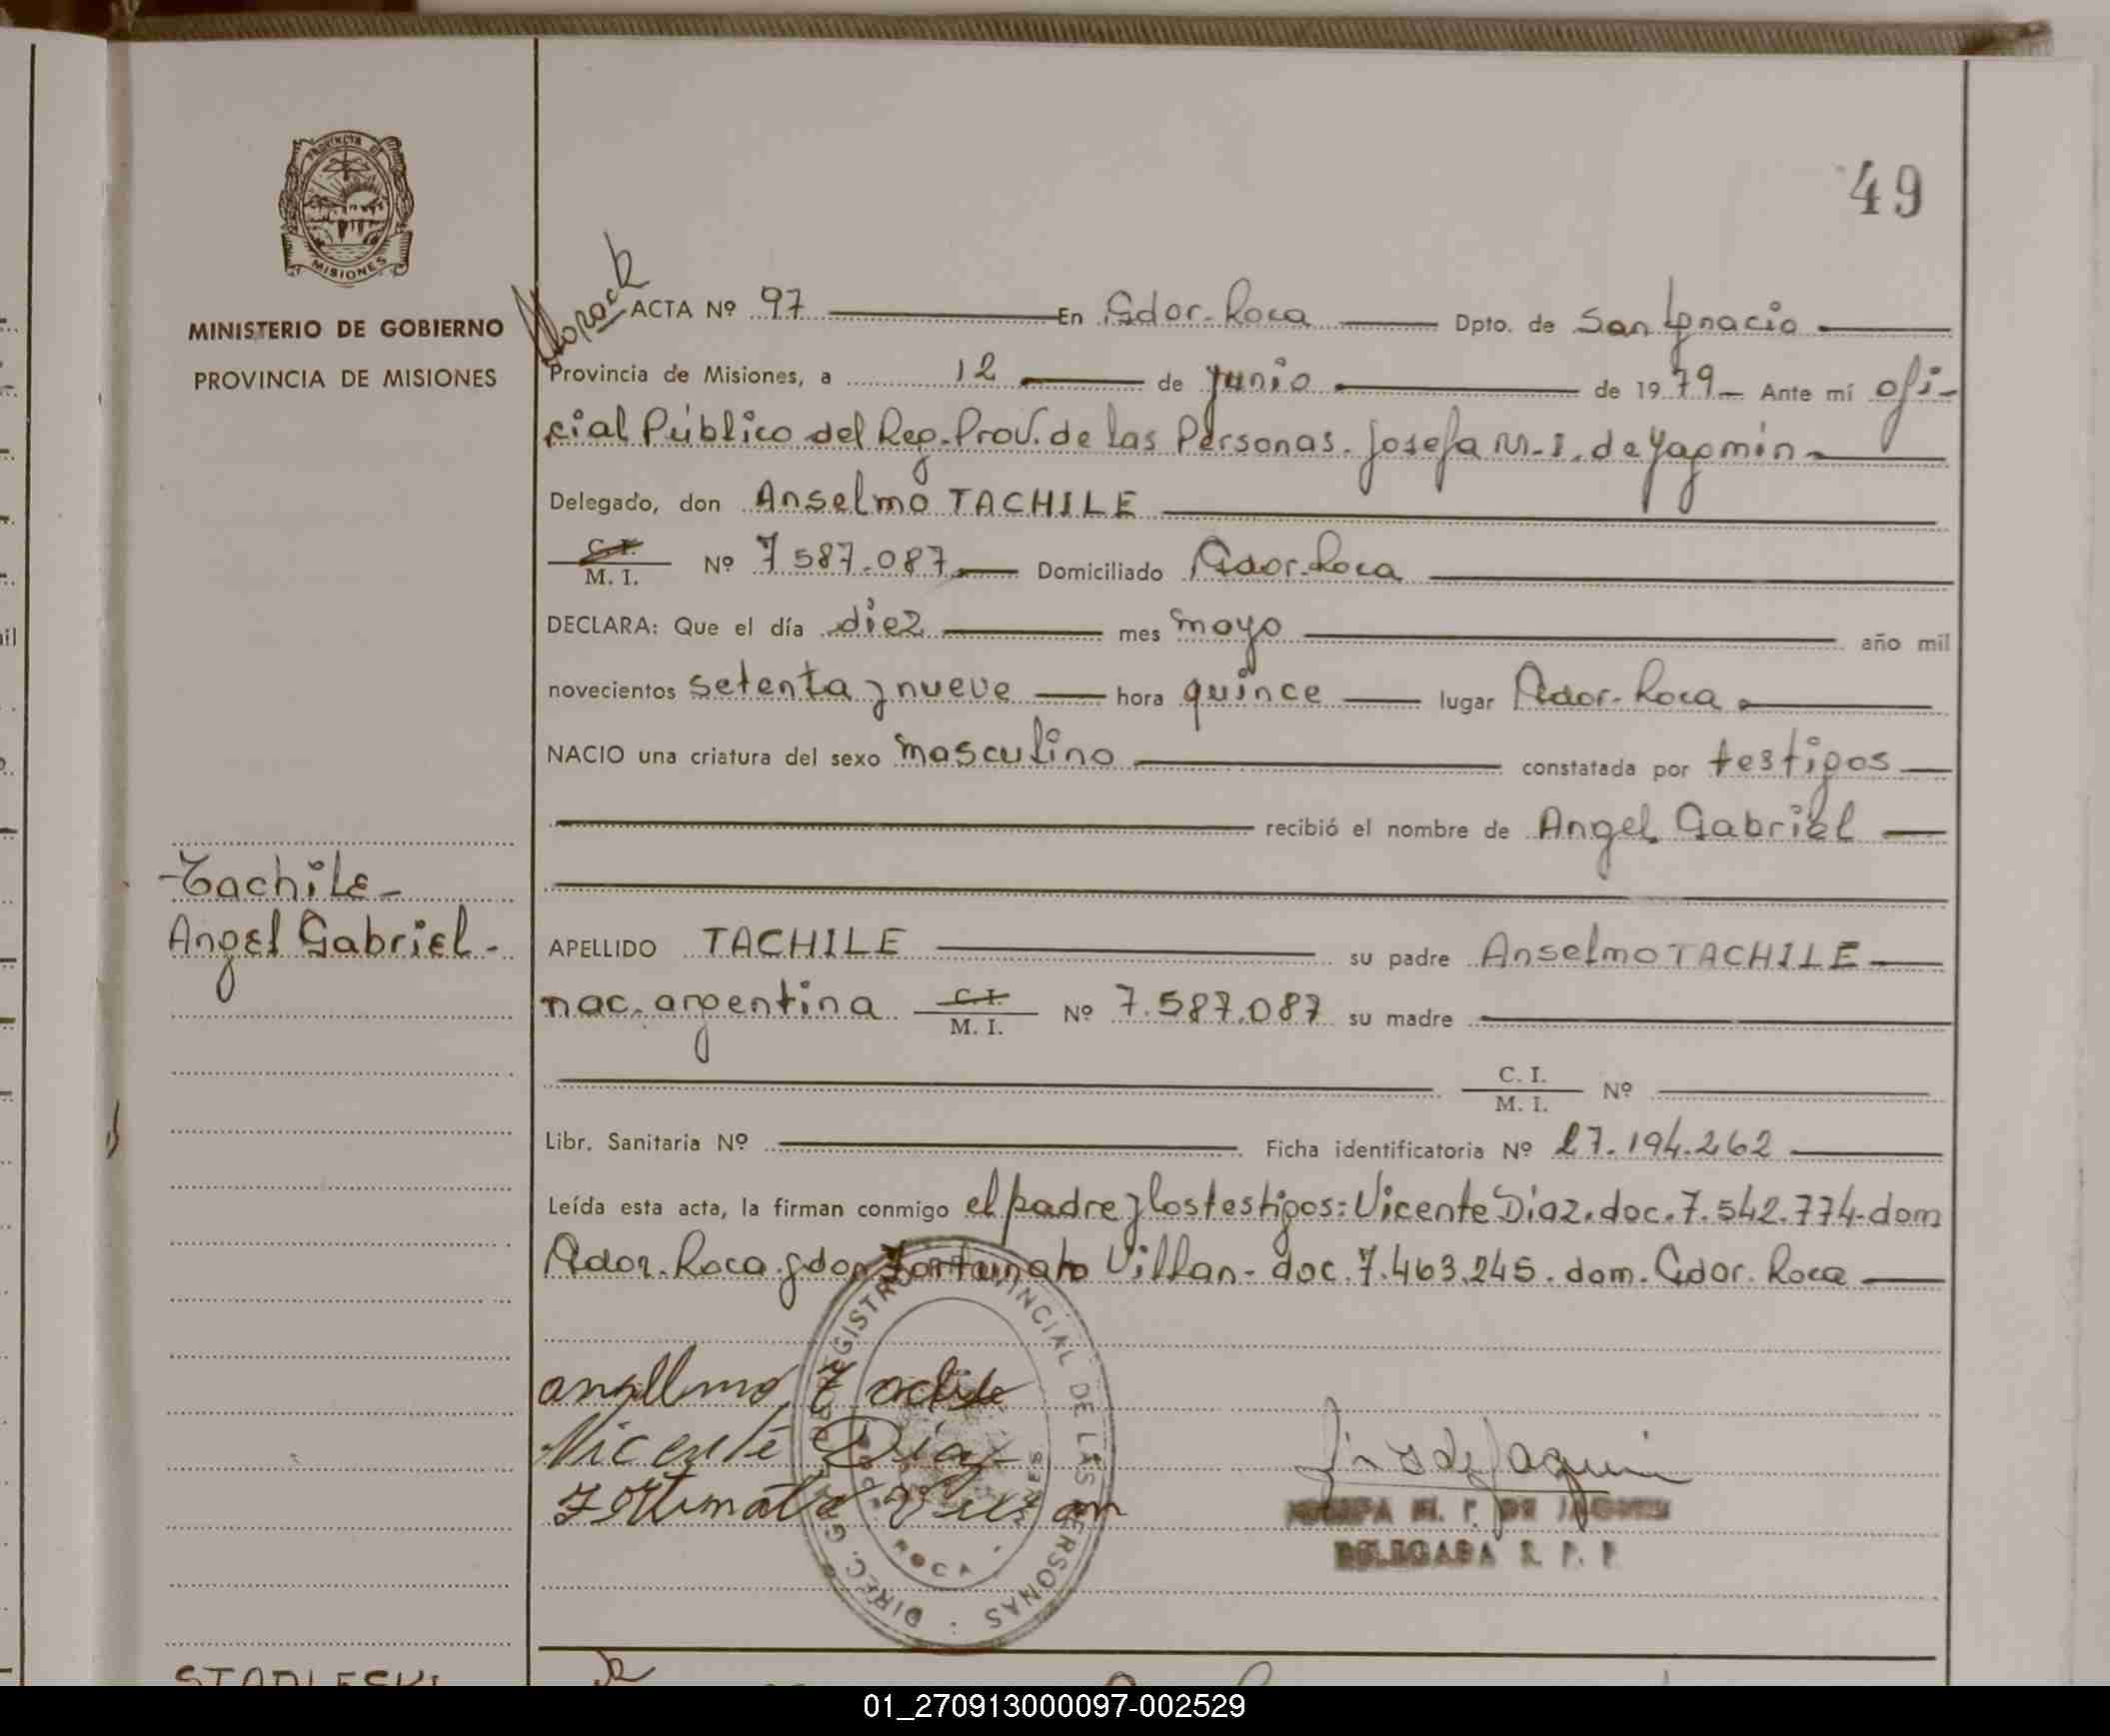 49
PROVINCIA DE
MISIONES
MINISTERIO DE GOBIERNO
PROVINCIA DE MISIONES
Tachile-
Angel Gabriel-
ACTA Nº 97 En Gdor. Roca Dpto. de San Ignacio
Provincia de Misiones, a 12 de junio de 1979 Ante mí ofi-
cial Público del Reg. Prov. de las Personas. Josefa M. I. de
Delegado, don Anselmo TACHILE
C. I.
M. I. Nº 7587.087 Domiciliado Gdor. Roca
DECLARA: Que el día diez mes mayo año mil
novecientos setenta y nueve hora quince lugar Gdor. Roca
NACIO una criatura del sexo masculino constatada por testigos
recibió el nombre de Angel Gabriel
APELLIDO TACHILE su padre Anselmo TACHILE
nac. argentina C. I.
M. I. Nº 7.587.087 su madre
C. I.
M. I. Nº
Libr. Sanitaria Nº Ficha identificatoria Nº 27.194.262
Leída esta acta, la firman conmigo el padre y los testigos: Vicente Diaz. doc. 7.542.774- dom
Gdor. Roca y don Fortunato Villan- doc. 7.463.245. dom. Gdor. Roca
Vicente Diaz
DIREC. GRAL. DE REGISTRO PROVINCIAL DE LAS PERSONAS
ROCA
DELEGADA R. P. P
01_270913000097-002529